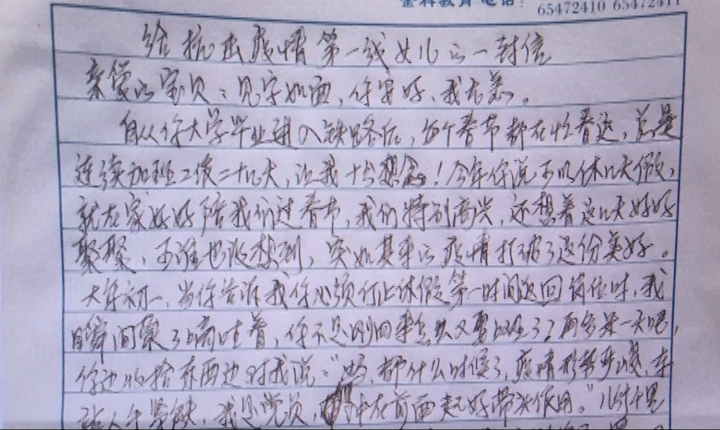 金科教育 电话: 65472410 65472411
给抗击疫情第一线女儿的一封信
亲爱的宝贝:见字如面,你安好、我无恙。
自从你大学毕业进入铁路后,每个春节都在忙春运,总是
连续加班工作二十几天,让我十分想念!今年你说可以休几天假,
就在家好好陪我们过春节,我们特别高兴,还想着这几天好好
聚聚,可谁也没想到,突如其来的疫情打破了这份美好。
大年初一,当你告诉我你必须停止休假第一时间返回岗位时,我
瞬间哭了嘀咕着,你不是刚回来怎么又要
你边收拾东西边对我说:“妈,都什么时候了,疫情形势严峻,车
站人手紧缺,我是党员,在前面起好带头作用。”儿行千里